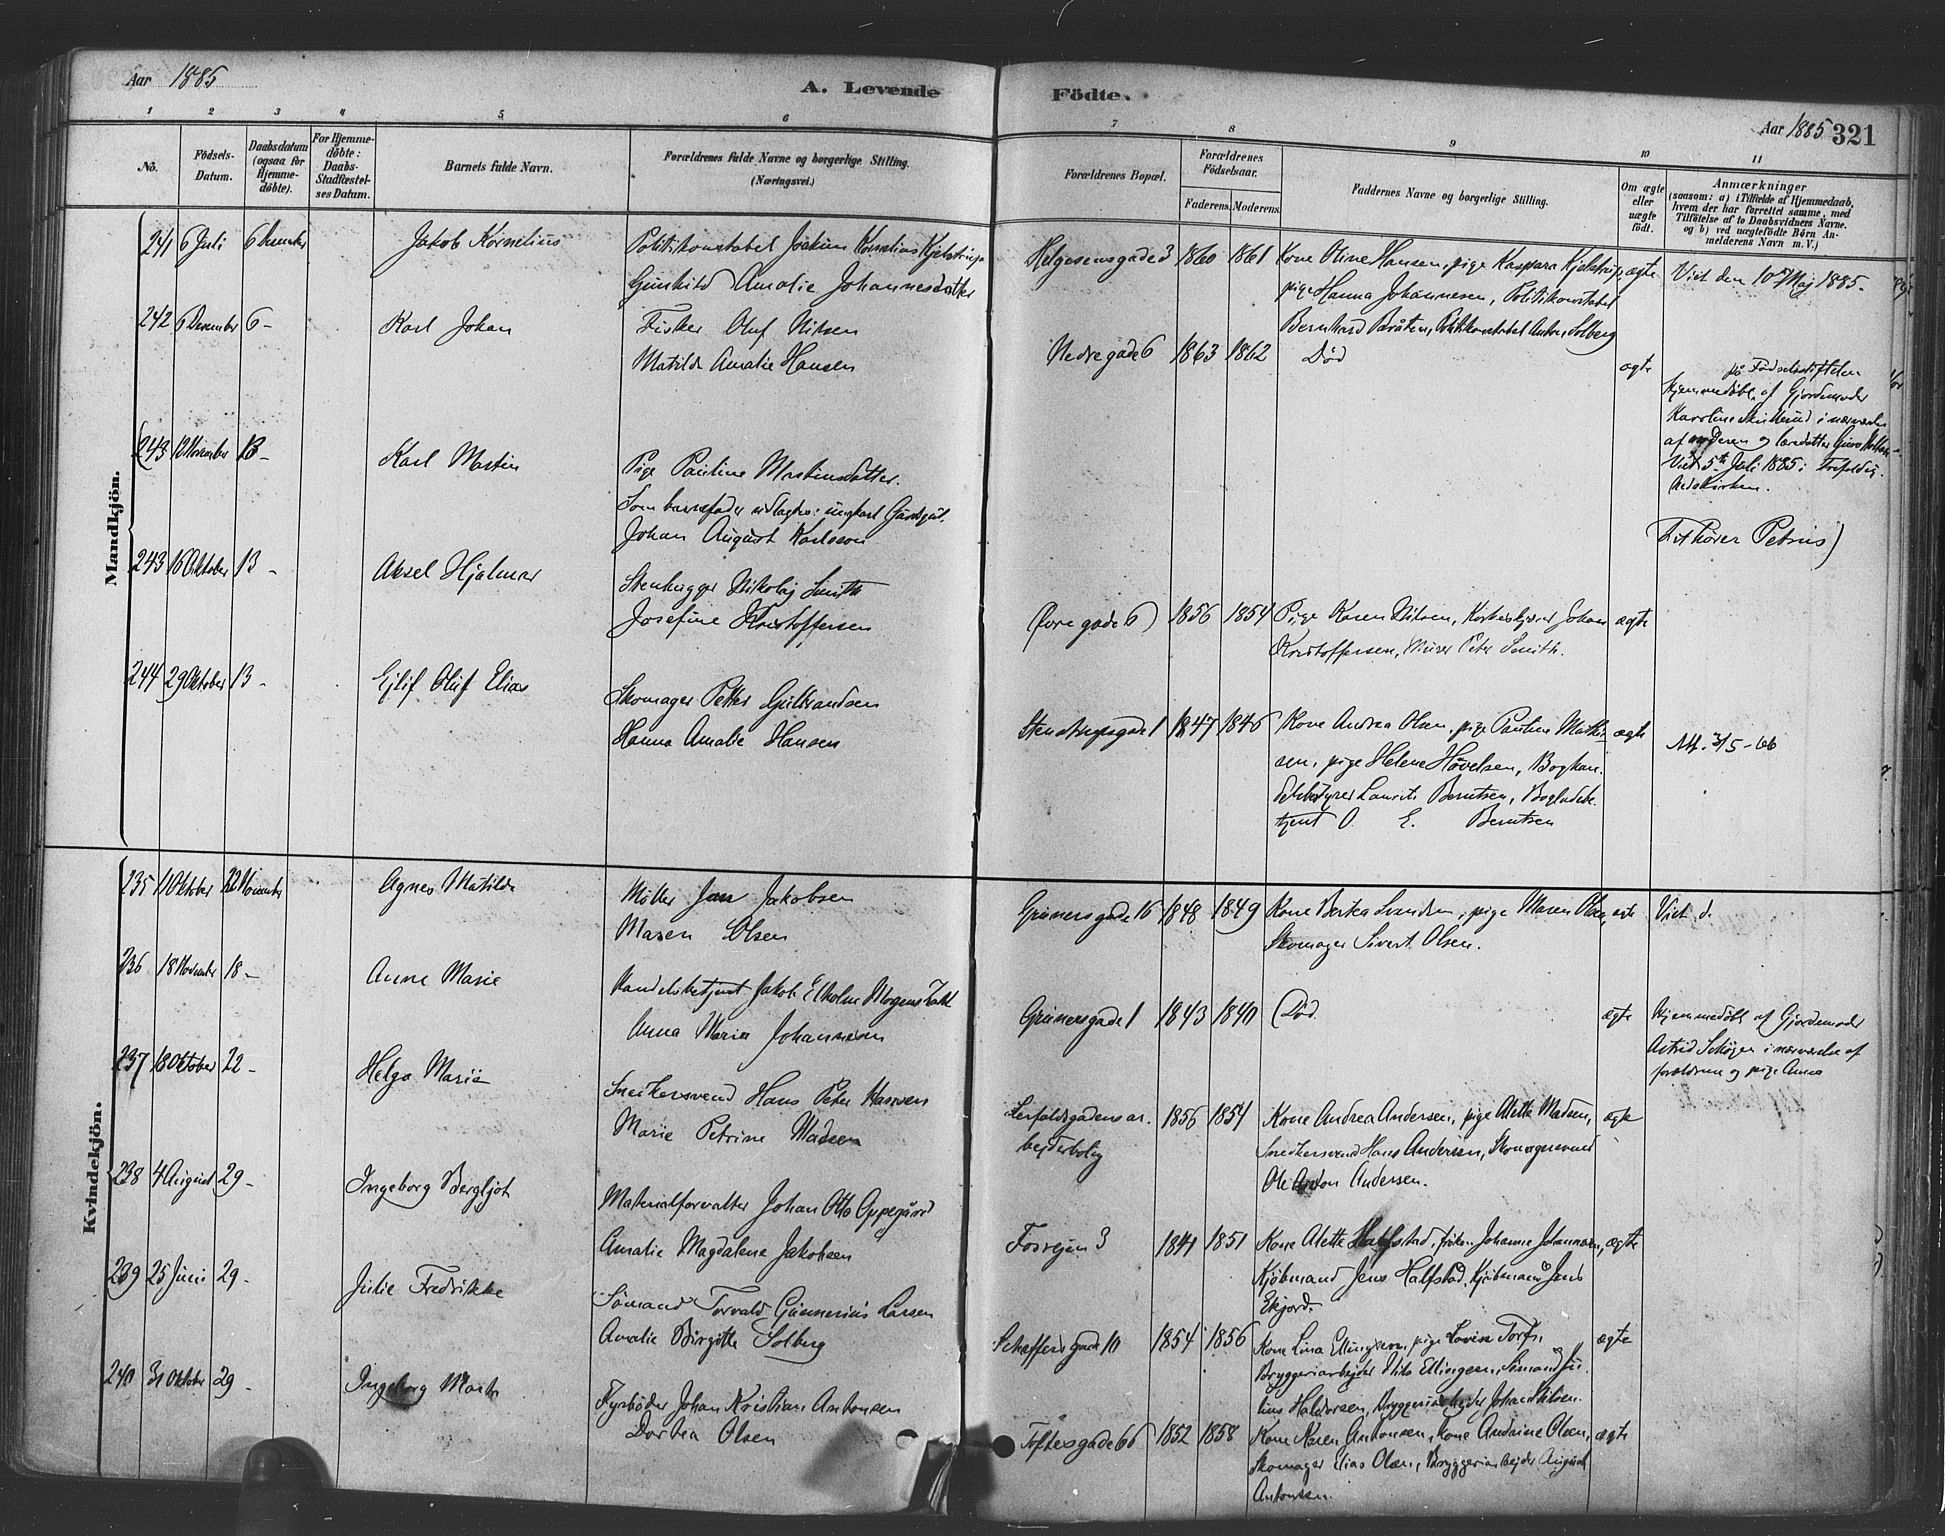 Aar 1885
A. Levende
Födte.
Aar 1885 321
1 2 3 4 5 6 7 8 9 10 11
No.
Födsels-
Datum.
Daabsdatum
(ogsaa for
Hjemme-
döbte).
For Hjemme-
döbte:
Daabs-
Stadfæstel-
ses Datum.
Barnets fulde Navn.
Forældrenes fulde Navne og borgerlige Stilling.
(Næringsvei.)
Forældrenes Bopæl.
Forældrenes
Födselsaar.
Faderens. Moderens.
Faddernes Navne og borgerlige Stilling.
Om ægte
eller
uægte
födt.
Anmærkninger
(saasom: a) i Tilfælde af Hjemmedaab,
hvem der har forrettet samme, med
Tilföielse af to Daabsvidners Navne.
og b) ved uægtefödte Börn An-
melderens Navn m. V.)
Mandkjön.
241 6 Juli 6 Desember
Jakob Kornelius
Politikonstabel Joakim Kornelius Kjelstrup
Gunhild Amalie Johannesdatter
Helgesensgade 3 1860 1861
Kone Oline Hansen, pige Kaspara Kjelstrup,
pige Hanna Johannesen, Politikonstabel
Bernhard Bråten, Politikonstabel Anton Solberg
ægte
Viet den 10de Maj 1885.
242 6 Desember 6 -
Karl Johan
Fisker Oluf Nilsen
Matilde Amalie Hansen
Nedregade 6 1863 1862
Død
ægte
på Fødselsstiftelsen
hjemmedøbt af Gjordemoder
Karoline i nærværelse
af moderen og
Viet 5te Juli 1885 i Trefoldig-
hedskirken.
(243 12 November 13 -
Karl Martin
Pige Pauline Martinsdatter.
Som barnefader udlagt: ungkarl Gårdsgut
Johan August Karlsson
Tilhører Petrus)
243 16 Oktober 13 -
Aksel Hjalmar
Stenhugger Nikolaj Smith
Josefine Kristoffersen
Øvregade 6) 1856 1854
Pige Karen Nilsen, Johan
Kristoffersen, Murer Peter Smith.
ægte
244 29 Oktober 13 -
Ejlif Oluf Elias
Skomager Petter Gulbrandsen
Hanna Amalie Hansen
Stenstrupsgade 1 1847 1846
Kone Andrea Olsen, pige Pauline Mathi-
sen, pige Helene Høvelsen, Boghan-
delbestyrer Laurits Berntsen, Bogladebe-
tjent O. E. Berntsen
ægte
Att. 3/5-66
Kvindekjön.
235 11 Oktober 22 November
Agnes Matilde
Møller Jan Jakobsen
Maren Olsen
Grünersgade 16 1848 1849
Kone Bertea Svendsen, pige Maren Olsen,
Skomager Sivert Olsen.
ægte
Viet d.
236 18 November 18 -
Anne Marie
Handelsbetjent Jakob Elholm Mogens
Anna Maria Johannesen
Grünersgade 1 1843 1840
Død.
ægte
Hjemmedøbt af Gjordemoder
Astrid i nærværelse af
forældrene og pige Anna
237 18 Oktober 22 -
Helga Marie
Snedkersvend Hans Peter Hansen
Marie Petrine Madsen
Lerfaldsgadens ar-
bejderbolig 1856 1854
Kone Andrea Andersen, pige Alette Madsen,
Snedkersvend Hans Andersen, Skomagersvend
Ole Anton Andersen.
ægte
238 4 August 29 -
Ingeborg Bergljot
Materialforvalter Johan Otto Oppegård
Amalie Magdalene Jakobsen
Fosvejen 3 1841 1851
Kone Alette Halfstad, frøken Johanne Johannesen,
Kjøbmand Jens Halfstad, Kjøbmand Jens
Ekjord.
ægte
239 25 Juni 29 -
Julie Fredrikke
Sømand Torvald Gunnerius Larsen
Amalie Birgitte Solberg
Schøffersgade 10 1854 1856
Kone Lina Ellingsen, pige Lovise Torfs,
Bryggeriarbejder Nils Ellingsen, Sømand Ju-
lius Haldorsen, Bryggeriarbejder Johan Nilsen.
ægte
240 31 Oktober 29 -
Ingeborg Marta
Fyrbøder Johan Kristian Antonsen
Dortea Olsen
Toftesgade 66 1852 1858
Kone Karen Antonsen, Kone Andrine Olsen,
Skomager Elias Olsen, Bryggeriarbejder August
Antonsen.
ægte